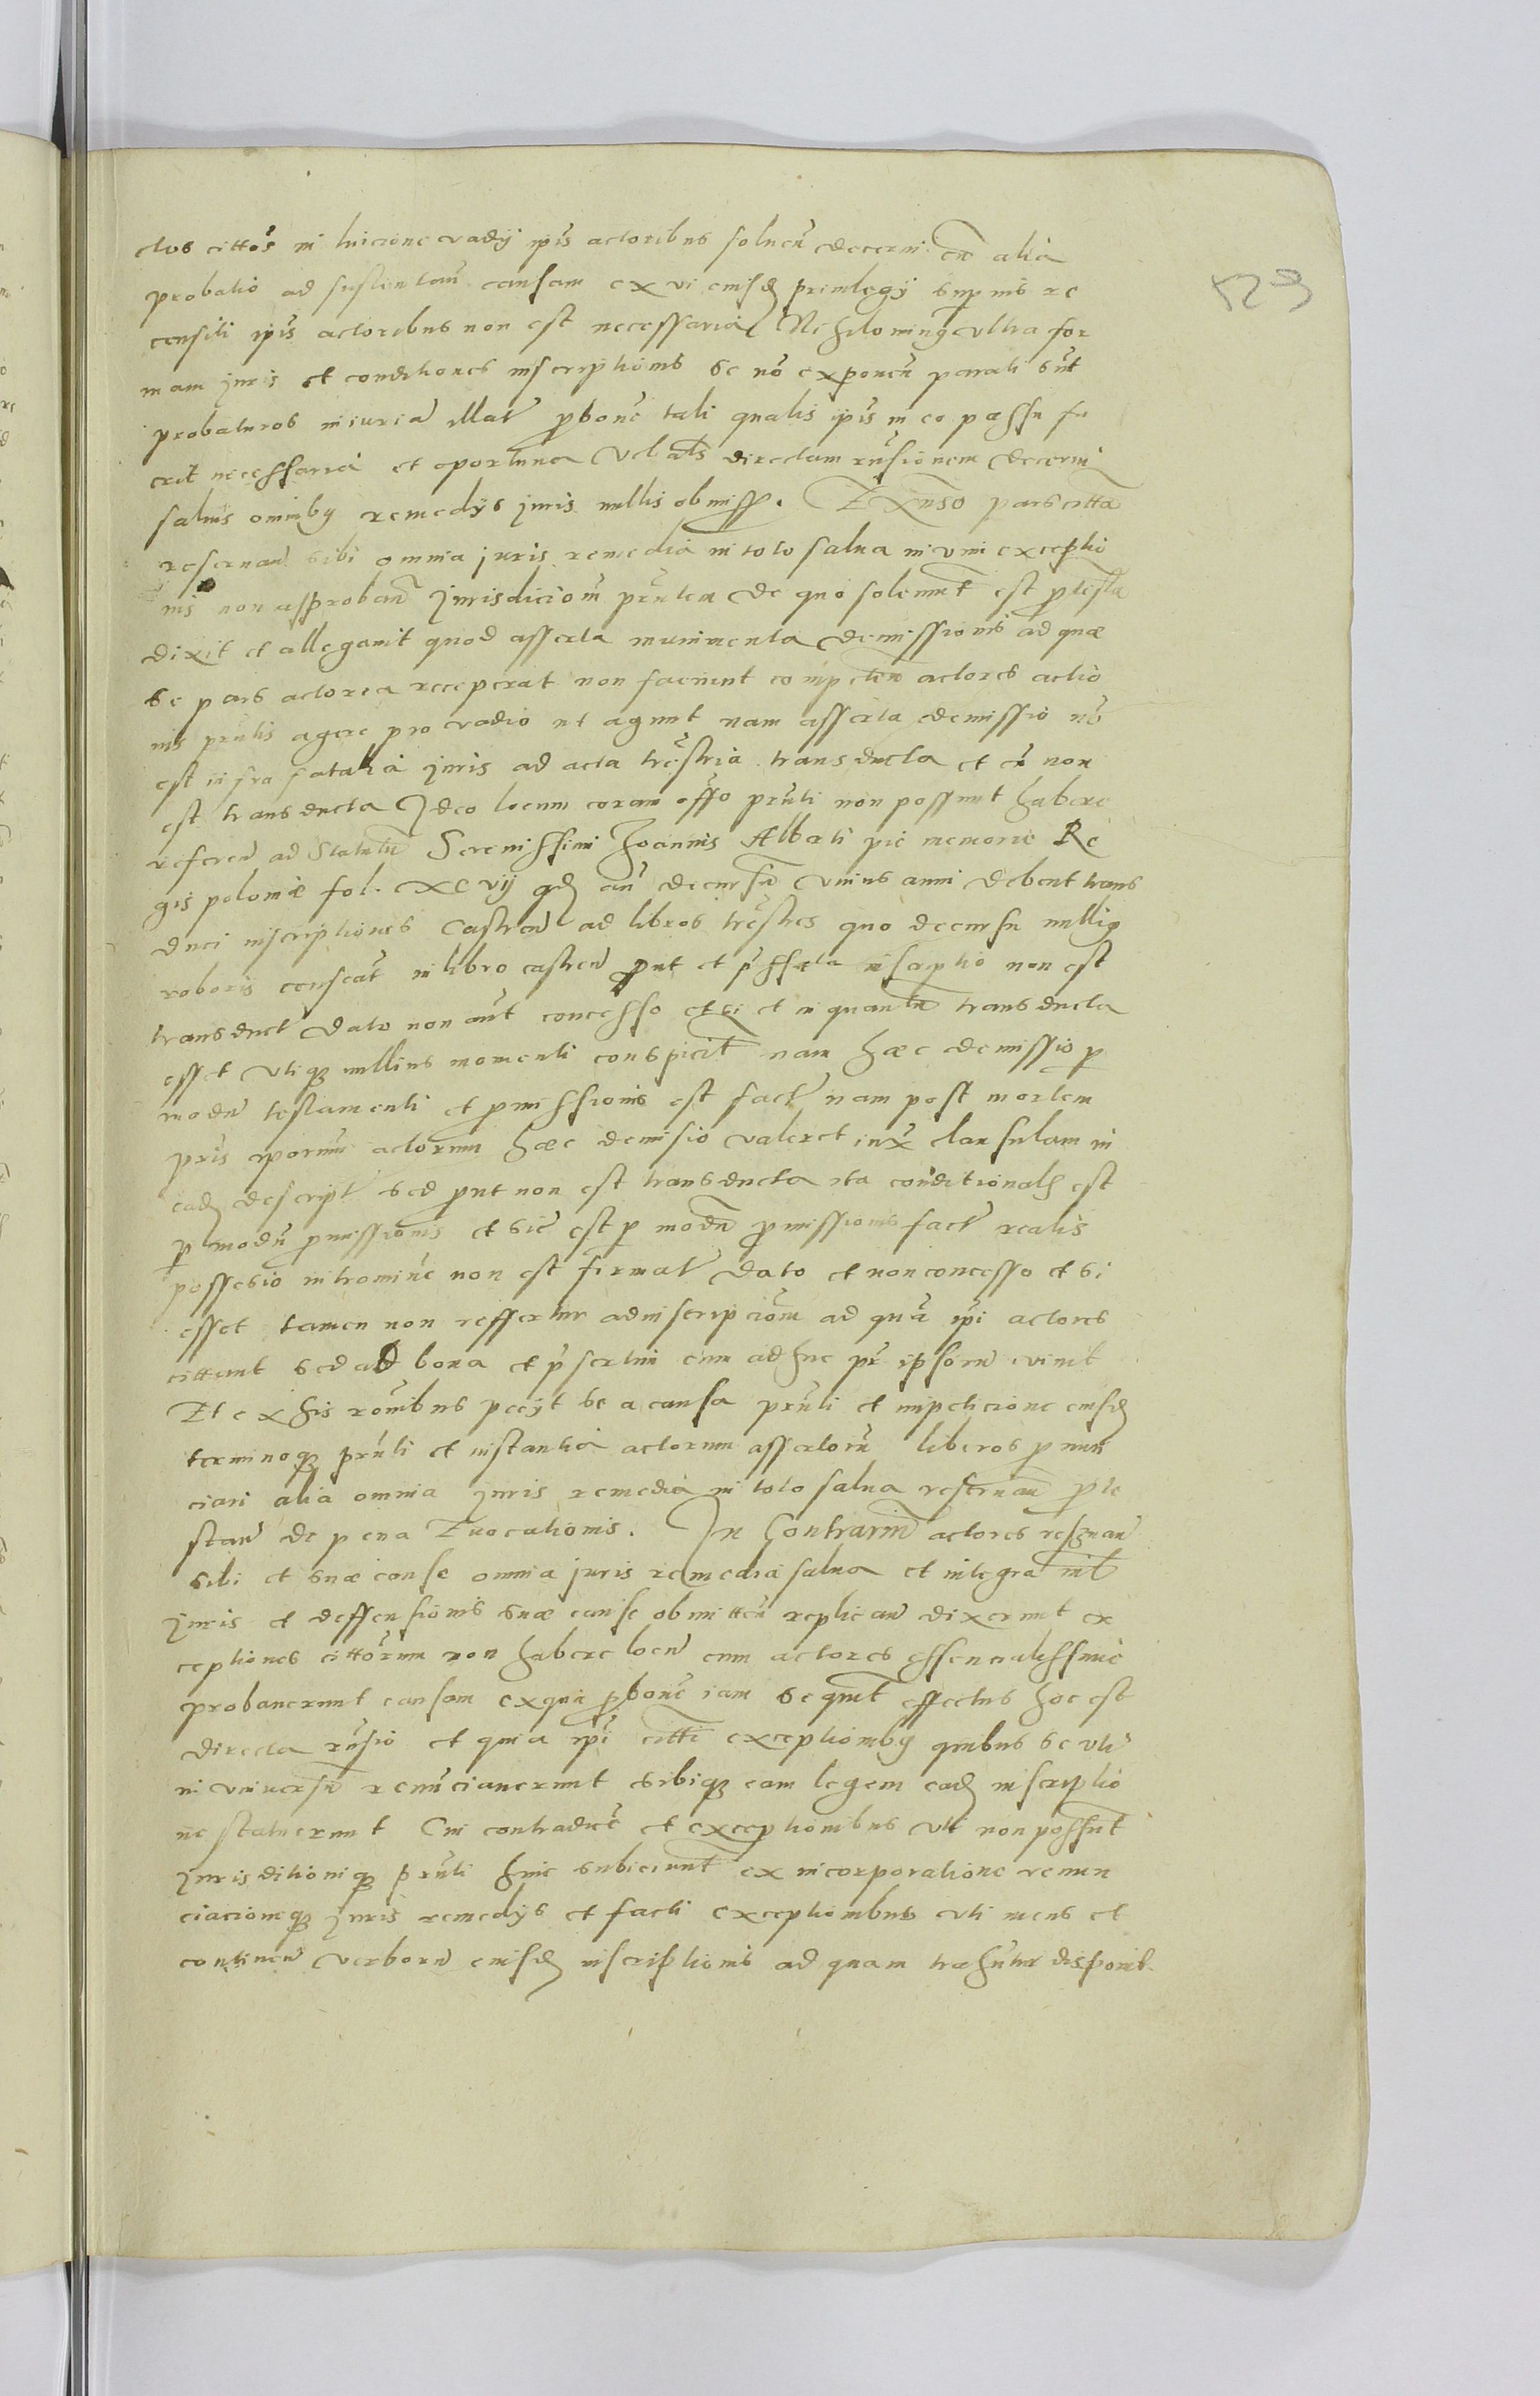 523
ctos cittos in luicione vadij ipis actoribus soluen decerni cum alia
probatio ad sustentan causam ex vi eiusd priuilegij superius re
censiti ipis actoribus non est necessaria Nihilominus vltra for
mam juris et conditiones inscriptionis se no exponen parati sunt
probaturos iniuria illat probone tali qualis ipis in eo passu fu
erit necessaria et oportuna Vel als directam rusionem decerni
saluis omnibus remedijs juris nullis obmiss. Ex aduso pars citta
reseruan sibi omnia juris remedia in toto salua in vim exceptio
nis non approban Jurisdiciom prntem de quo solemnt est protesta
dixit et allegauit quod asserta munimenta demissionis ad quæ
se pars actorea receperat non faciunt competen actores actio
nis prntis agere pro vadio ut agunt nam asserta demissio no
est infra fatalia juris ad acta trestria transducta et cu non
est transducta Ideo locum coram offo prnti non possunt habere
referen ad Statutu Serenissimi Joannis Alberti pie memorie Re
gis polonie fol. cxcvij qd an decursu vnius anni debent trans
duci inscriptiones Castren ad libros trestres quo decursu nullius
roboris censeat in libro castren prout et p asserta inscriptio non est
transduct Dato non aut concesso et si et in quantu transducta
esset vtiq nullius momenti conspicit nam hæc demissio p
modu testamenti et promissionis est fact nam post mortem
pris iporum actorum hæc demisio valeret iux clausulam in
ead descript sed prout non est transducta ita conditionals est
p modu promissionis et sic est p modu promissionis fact realis
possesio intromine non est firmat dato et non concesso et si
esset tamen non reffertur ad inscripciom ad qua ipi actores
cittant sed ad bona et psertim cum ad huc pr ipsoru viuit
Et ex his romibus pecijt se a causa prnti et impeticione eiusd
terminoq prnti et instantia actorum assertoru liberos pronun
ciari alia omnia juris remedia in toto salua reseruan prote
stan de pena Euocationis. In Contrarium actores reseruan
sibi et suæ cause omnia juris remedia salua et integra nil
juris et deffensionis suæ cause obmitten replican dixerunt ex
ceptiones cittorum non habere locu cum actores essencialissime
probauerunt causam ex qua probone iam sequit effectus hoc est
directa rusio et quia ipi citti exceptionibus quibus se vti
in vniuersu renunciauerunt sibiq eam legem ead inscriptio
ne statuerunt Cui contradice et exceptionibus vti non possunt
Jurisditioniq prnti huic subiciunt ex incorporatione renun
ciacioneq juris remedijs et facti exceptionibus vti mens et
continen verboru eiusd inscriptionis ad quam trahuntur disponit.